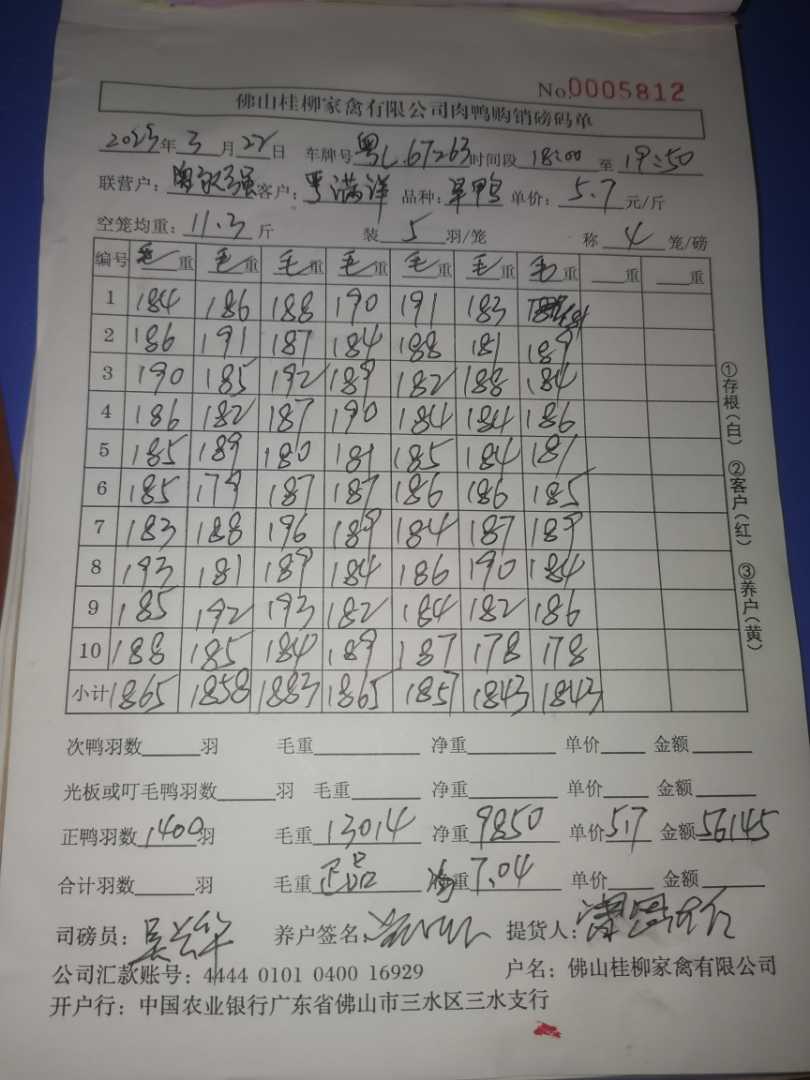 No.0005812
佛山桂柳家禽有限公司肉鸭购销磅码单
2025年3月22日 车牌号粤L.67263时间段18:00至19:50
联营户: 客户: 满洋 品种:旱鸭 单价:5.7元/斤
空笼均重:11.3斤 装5羽/笼 称4笼/磅
编号 毛重 毛重 毛重 毛重 毛重 毛重 毛重 重 重
1 184 186 188 190 191 183 181
2 186 191 187 184 188 181 189
3 190 185 192 189 182 188 184
4 186 182 187 190 184 184 186
5 185 189 180 181 185 184 181
6 185 179 187 187 186 186 185
7 183 188 196 189 184 187 189
8 193 181 189 184 186 190 184
9 185 192 193 182 184 182 186
10 188 185 184 189 187 178 178
小计 1865 1858 1883 1865 1857 1843 1843
①存根(白) ②客户(红) ③养户(黄)
次鸭羽数 羽 毛重 净重 单价 金额
光板或叮毛鸭羽数 羽 毛重 净重 单价 金额
正鸭羽数1400羽 毛重13014 净重9850 单价5.7 金额56145
合计羽数 羽 毛重正品 重7.04 单价 金额
司磅员:吴兴华 养户签名: 提货人:
公司汇款账号:4444 0101 0400 16929 户名:佛山桂柳家禽有限公司
开户行:中国农业银行广东省佛山市三水区三水支行